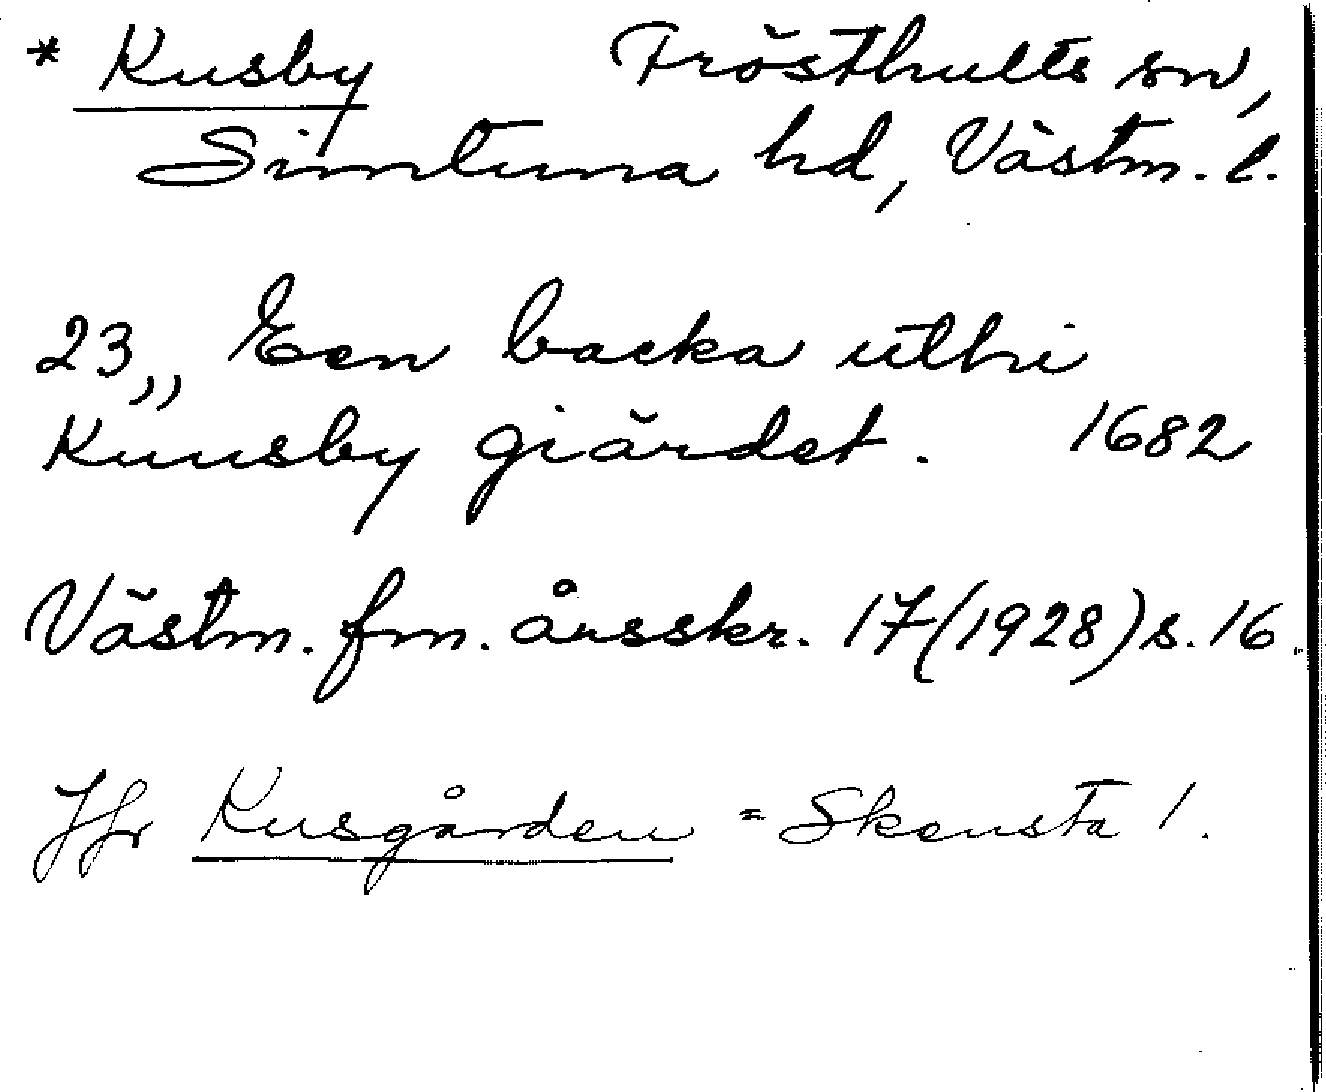 * Kusby Frösthults sn,
Simtuna hd, Västm. l.
23„ Een backa uthi
Kuusby giärdet. 1682
Västm. fm. årsskr. 17 (1928) s. 16.
Jfr Kusgården = Skensta 1.